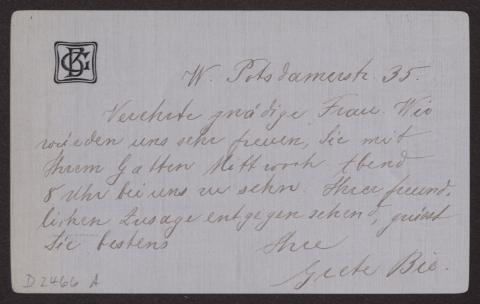 W. Potsdamerstr. 35.
Verehrte gnädige Frau. Wir
würden uns sehr freuen, Sie mit
Ihrem Gatten Mittwoch Abend
8 Uhr bei uns zu sehn. Ihrer freund-
lichen Zusage entgegen sehend, grüsst
Sie bestens Ihre
Grete Bie.
D2466 A